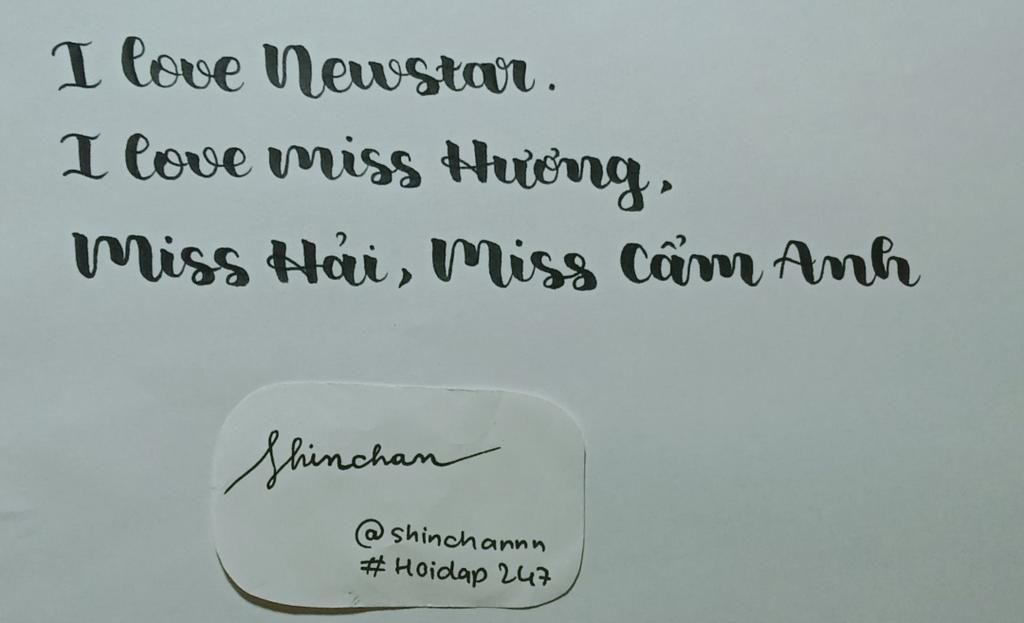 I love Newstar.
I love miss Hương,
Miss Hải, Miss Cẩm Anh
Shinchan
@shinchannn
# Hoidap 247